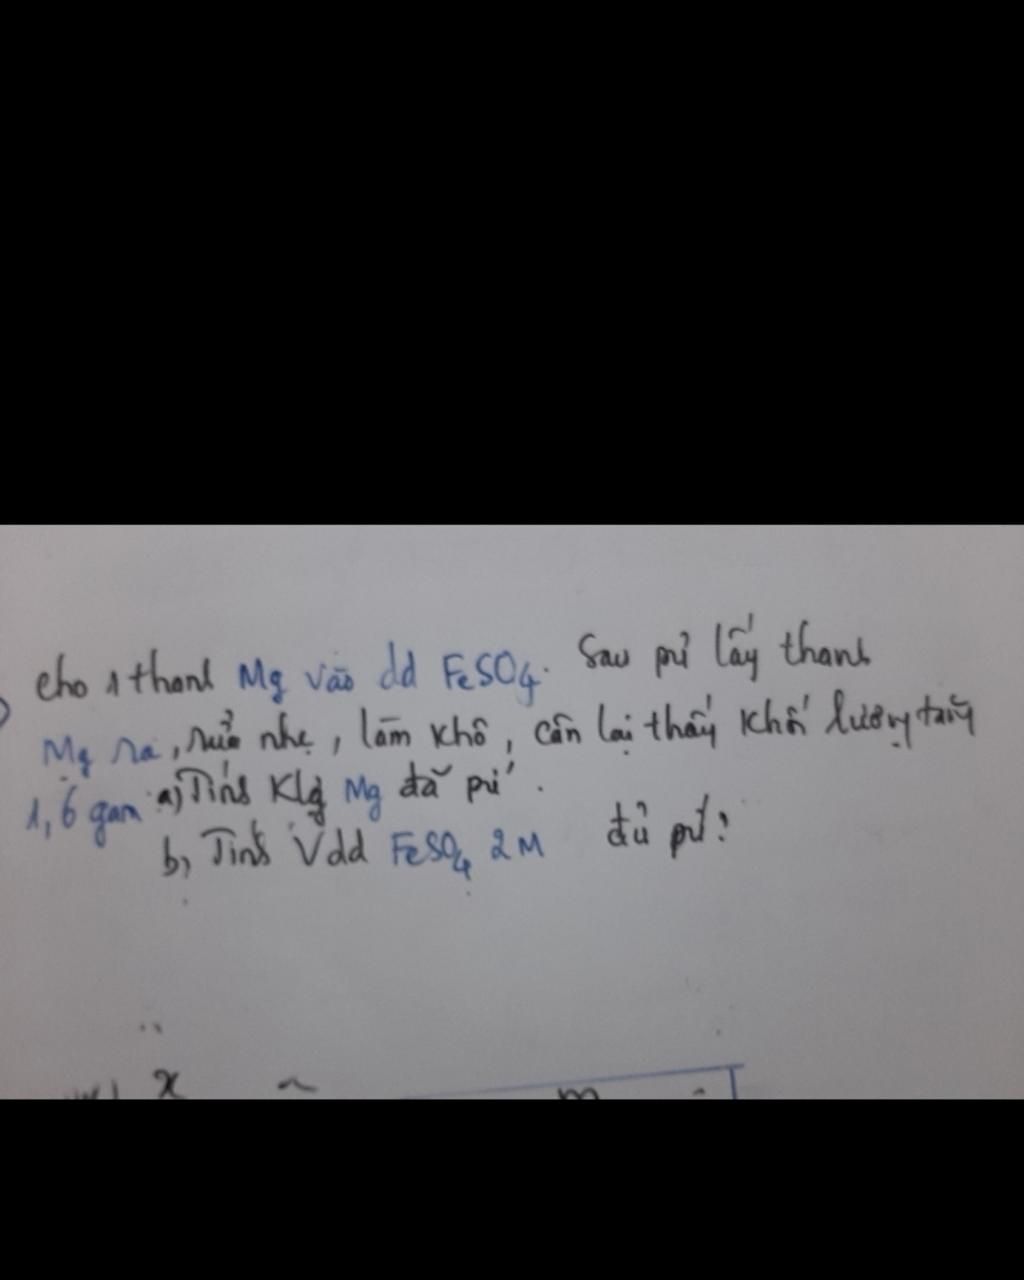 cho 1 thanh Mg vào dd FeSO4. Sau pứ lấy thanh
Mg ra, rửa nhẹ, làm khô, cân lại thấy khối lượng tăng
1,6 gam a) Tính Klg Mg đã pứ.
b, Tính Vdd FeSO4 2M đủ pứ?
x
m